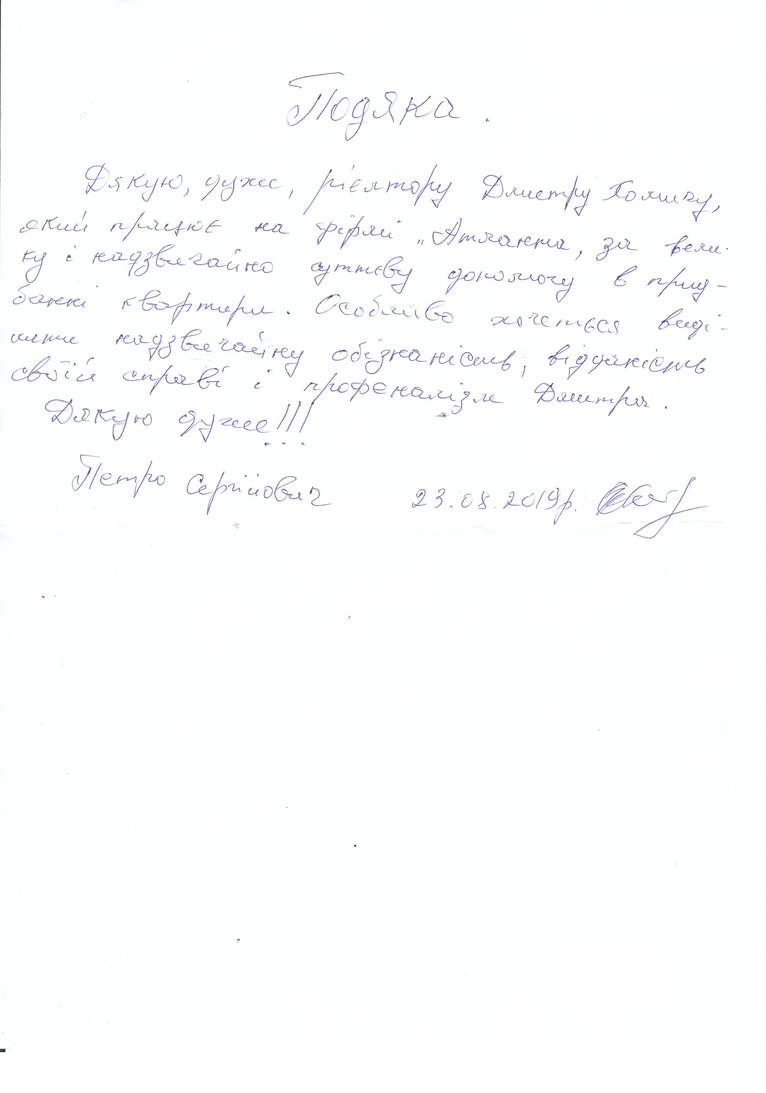 Подяка.
Дякую, дуже, рієлтору Дмитру Хомичу,
який працює на фірмі „Атланта, за вели-
ку і надзвичайно суттєву допомогу в прид-
банні квартири. Особливо хочеться виді-
лити надзвичайну обізнаність, відданість
своїй справі і профеналізм Дмитра.
Дякую дуже!!!
Петро Сергійович 23.08.2019р.